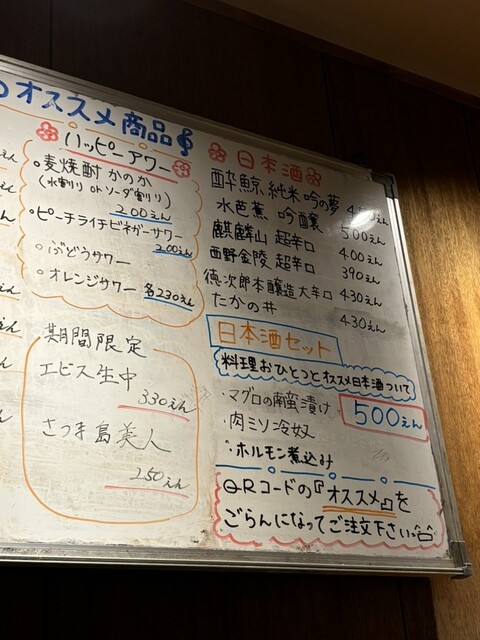 のオススメ商品
ハッピーアワー
麦焼酎 かのか
(水割り or ソーダ割り)
200えん
ピーチライチビネガーサワー
200えん
ぶどうサワー
オレンジサワー 各230えん
期間限定
エビス生中
330えん
さつま島美人
250えん
日本酒
酔鯨 純米 吟の夢
水芭蕉 吟醸 500えん
麒麟山 超辛口 400えん
西野金陵 超辛口 390えん
徳次郎本醸造 大辛口 430えん
たかの井 430えん
日本酒セット
料理おひとつとオススメ日本酒ついて
500えん
・マグロの南蛮漬け
・肉ミソ冷奴
・ホルモン煮込み
QRコードの『オススメ』を
ごらんになってご注文下さい